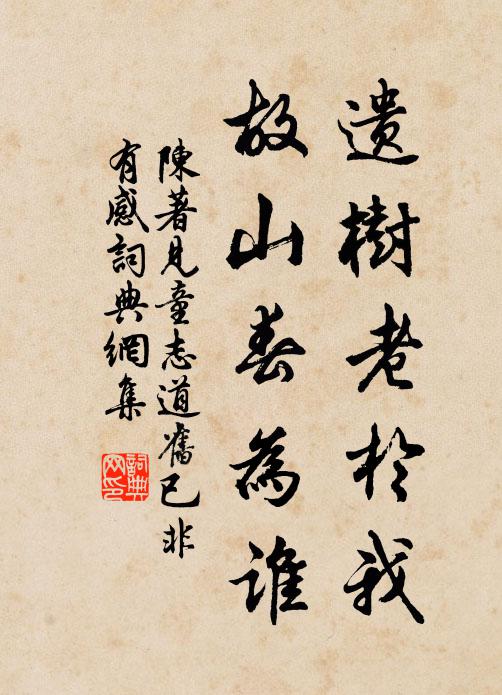 遺樹老於我
故山春為誰
陳著見童志道舊已非
有感詞典網集
詞典網印